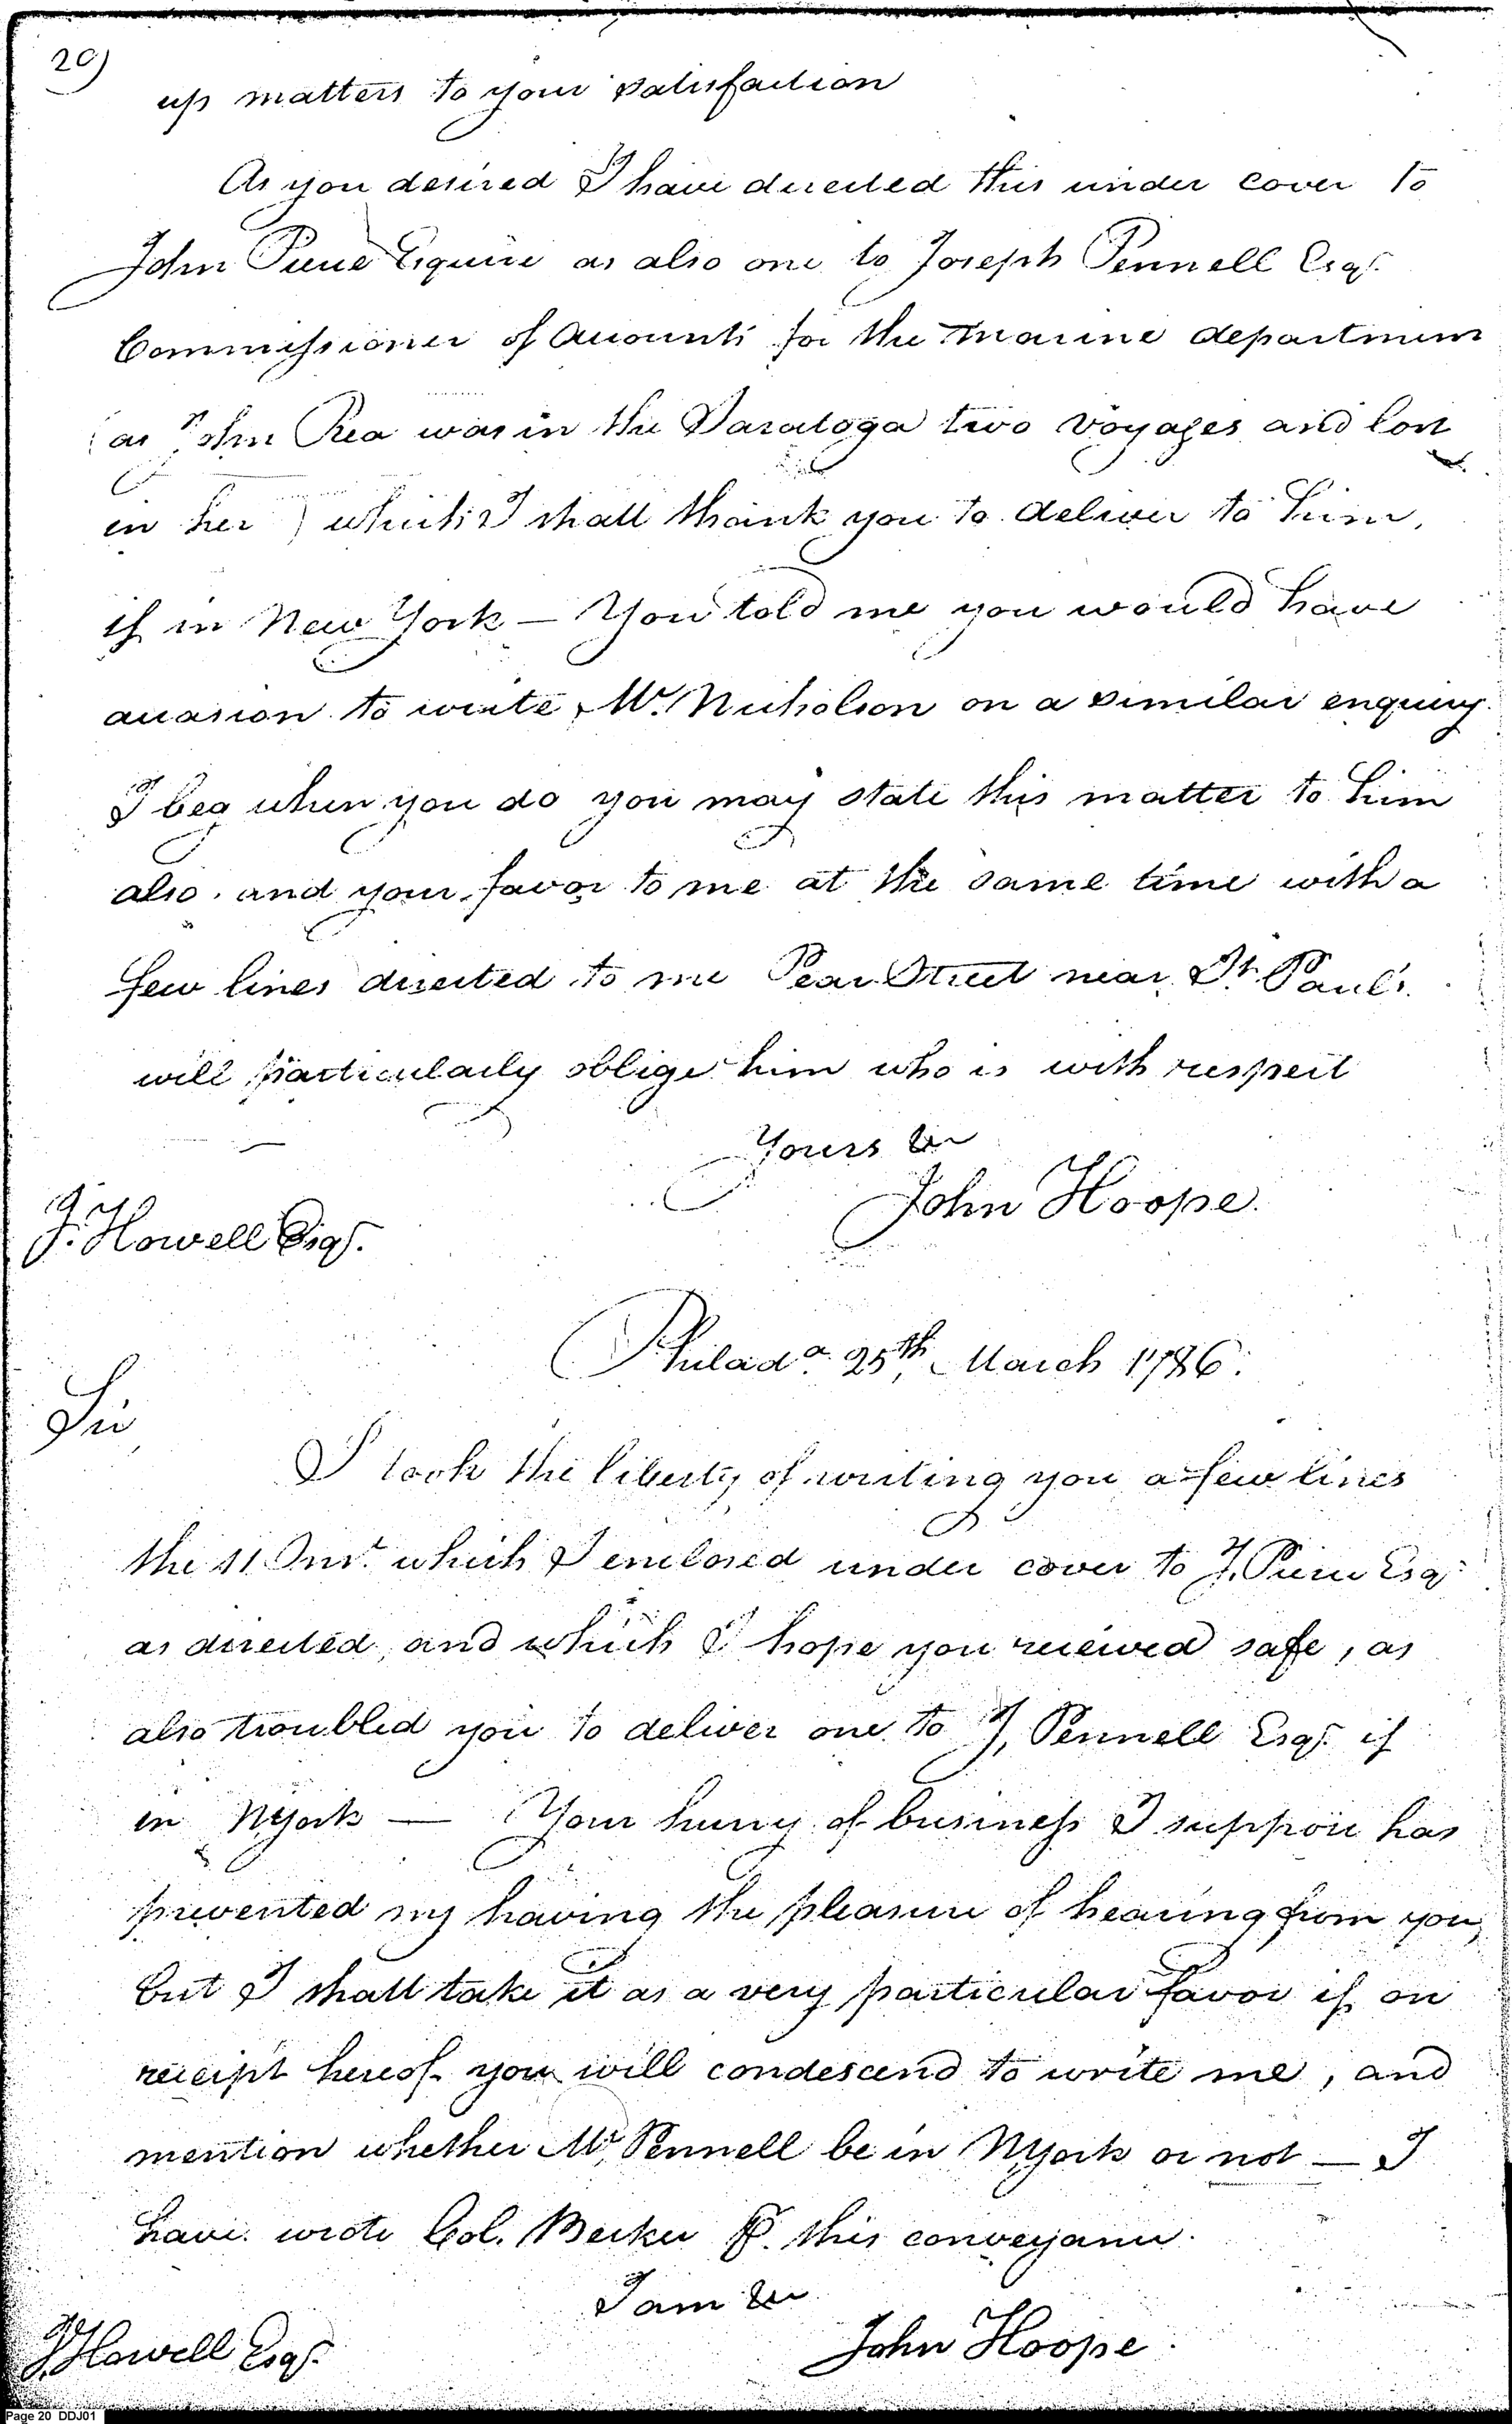 20)
up matters to your satisfaction
As you desired I have directed this under cover to
John Pierce Esquire as also one to Joseph Pennell Esqr.
Commissioner of Accounts for the Marine department
(as John Rea was in the Saratoga two voyages and lost
in her) which I shall thank you to deliver to him,
if in New York — You told me you would have
occasion to write Mr. Nicholson on a similar enquiry.
I beg when you do you may state this matter to him
also, and your favor to me at the same time with a
few lines directed to me Pear Street near St. Paul's.
will particularly oblige him who is with respect
Yours &c
John Hoope.
J. Howell Esqr.
Philada. 25th March 1786.
Sir
I took the liberty of writing you a few lines
the 11 Inst. which I enclosed under cover to J. Pierce Esqr
as directed, and which I hope you received safe, as
also troubled you to deliver one to J. Pennell Esqr. if
in NYork — Your hurry of business I suppose has
prevented my having the pleasure of hearing from you,
but I shall take it as a very particular favor if on
receipt hereof you will condescend to write me, and
mention whether Mr. Pennell be in NYork or not — I
have wrote Col. Becker P. this conveyance.
I am &c
John Hoope
J. Howell Esqr.
Page 20 DDJ01